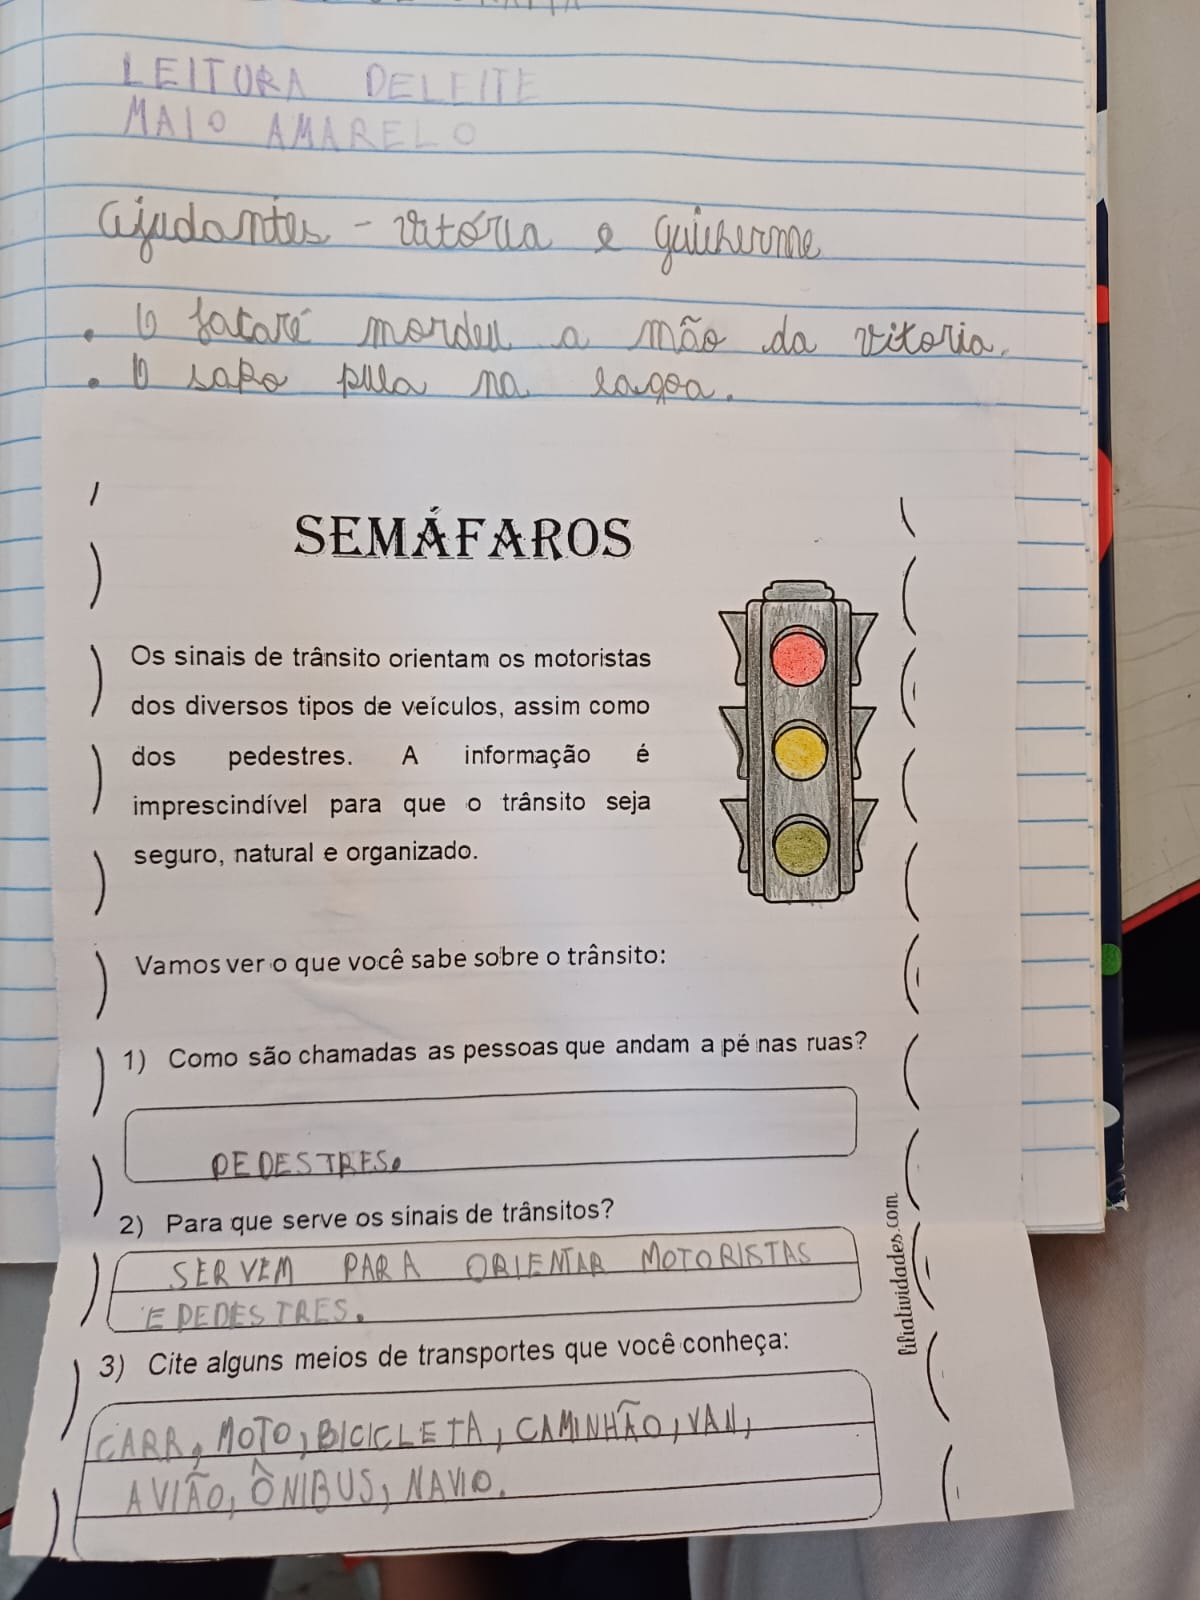 LEITURA DELEITE
MAIO AMARELO
Ajudantes - Vitória e Guilherme
. O jacaré mordeu a mão da vitoria.
. O sapo pula na lagoa.
SEMÁFAROS
Os sinais de trânsito orientam os motoristas
dos diversos tipos de veículos, assim como
dos pedestres. A informação é
imprescindível para que o trânsito seja
seguro, natural e organizado.
Vamos ver o que você sabe sobre o trânsito:
1) Como são chamadas as pessoas que andam a pé nas ruas?
PEDESTRES.
2) Para que serve os sinais de trânsitos?
SERVEM PARA ORIENTAR MOTORISTAS
E PEDESTRES.
3) Cite alguns meios de transportes que você conheça:
CARR, MOTO, BICICLETA, CAMINHÃO, VAN,
AVIÃO, ÔNIBUS, NAVIO.
liliatividades.com